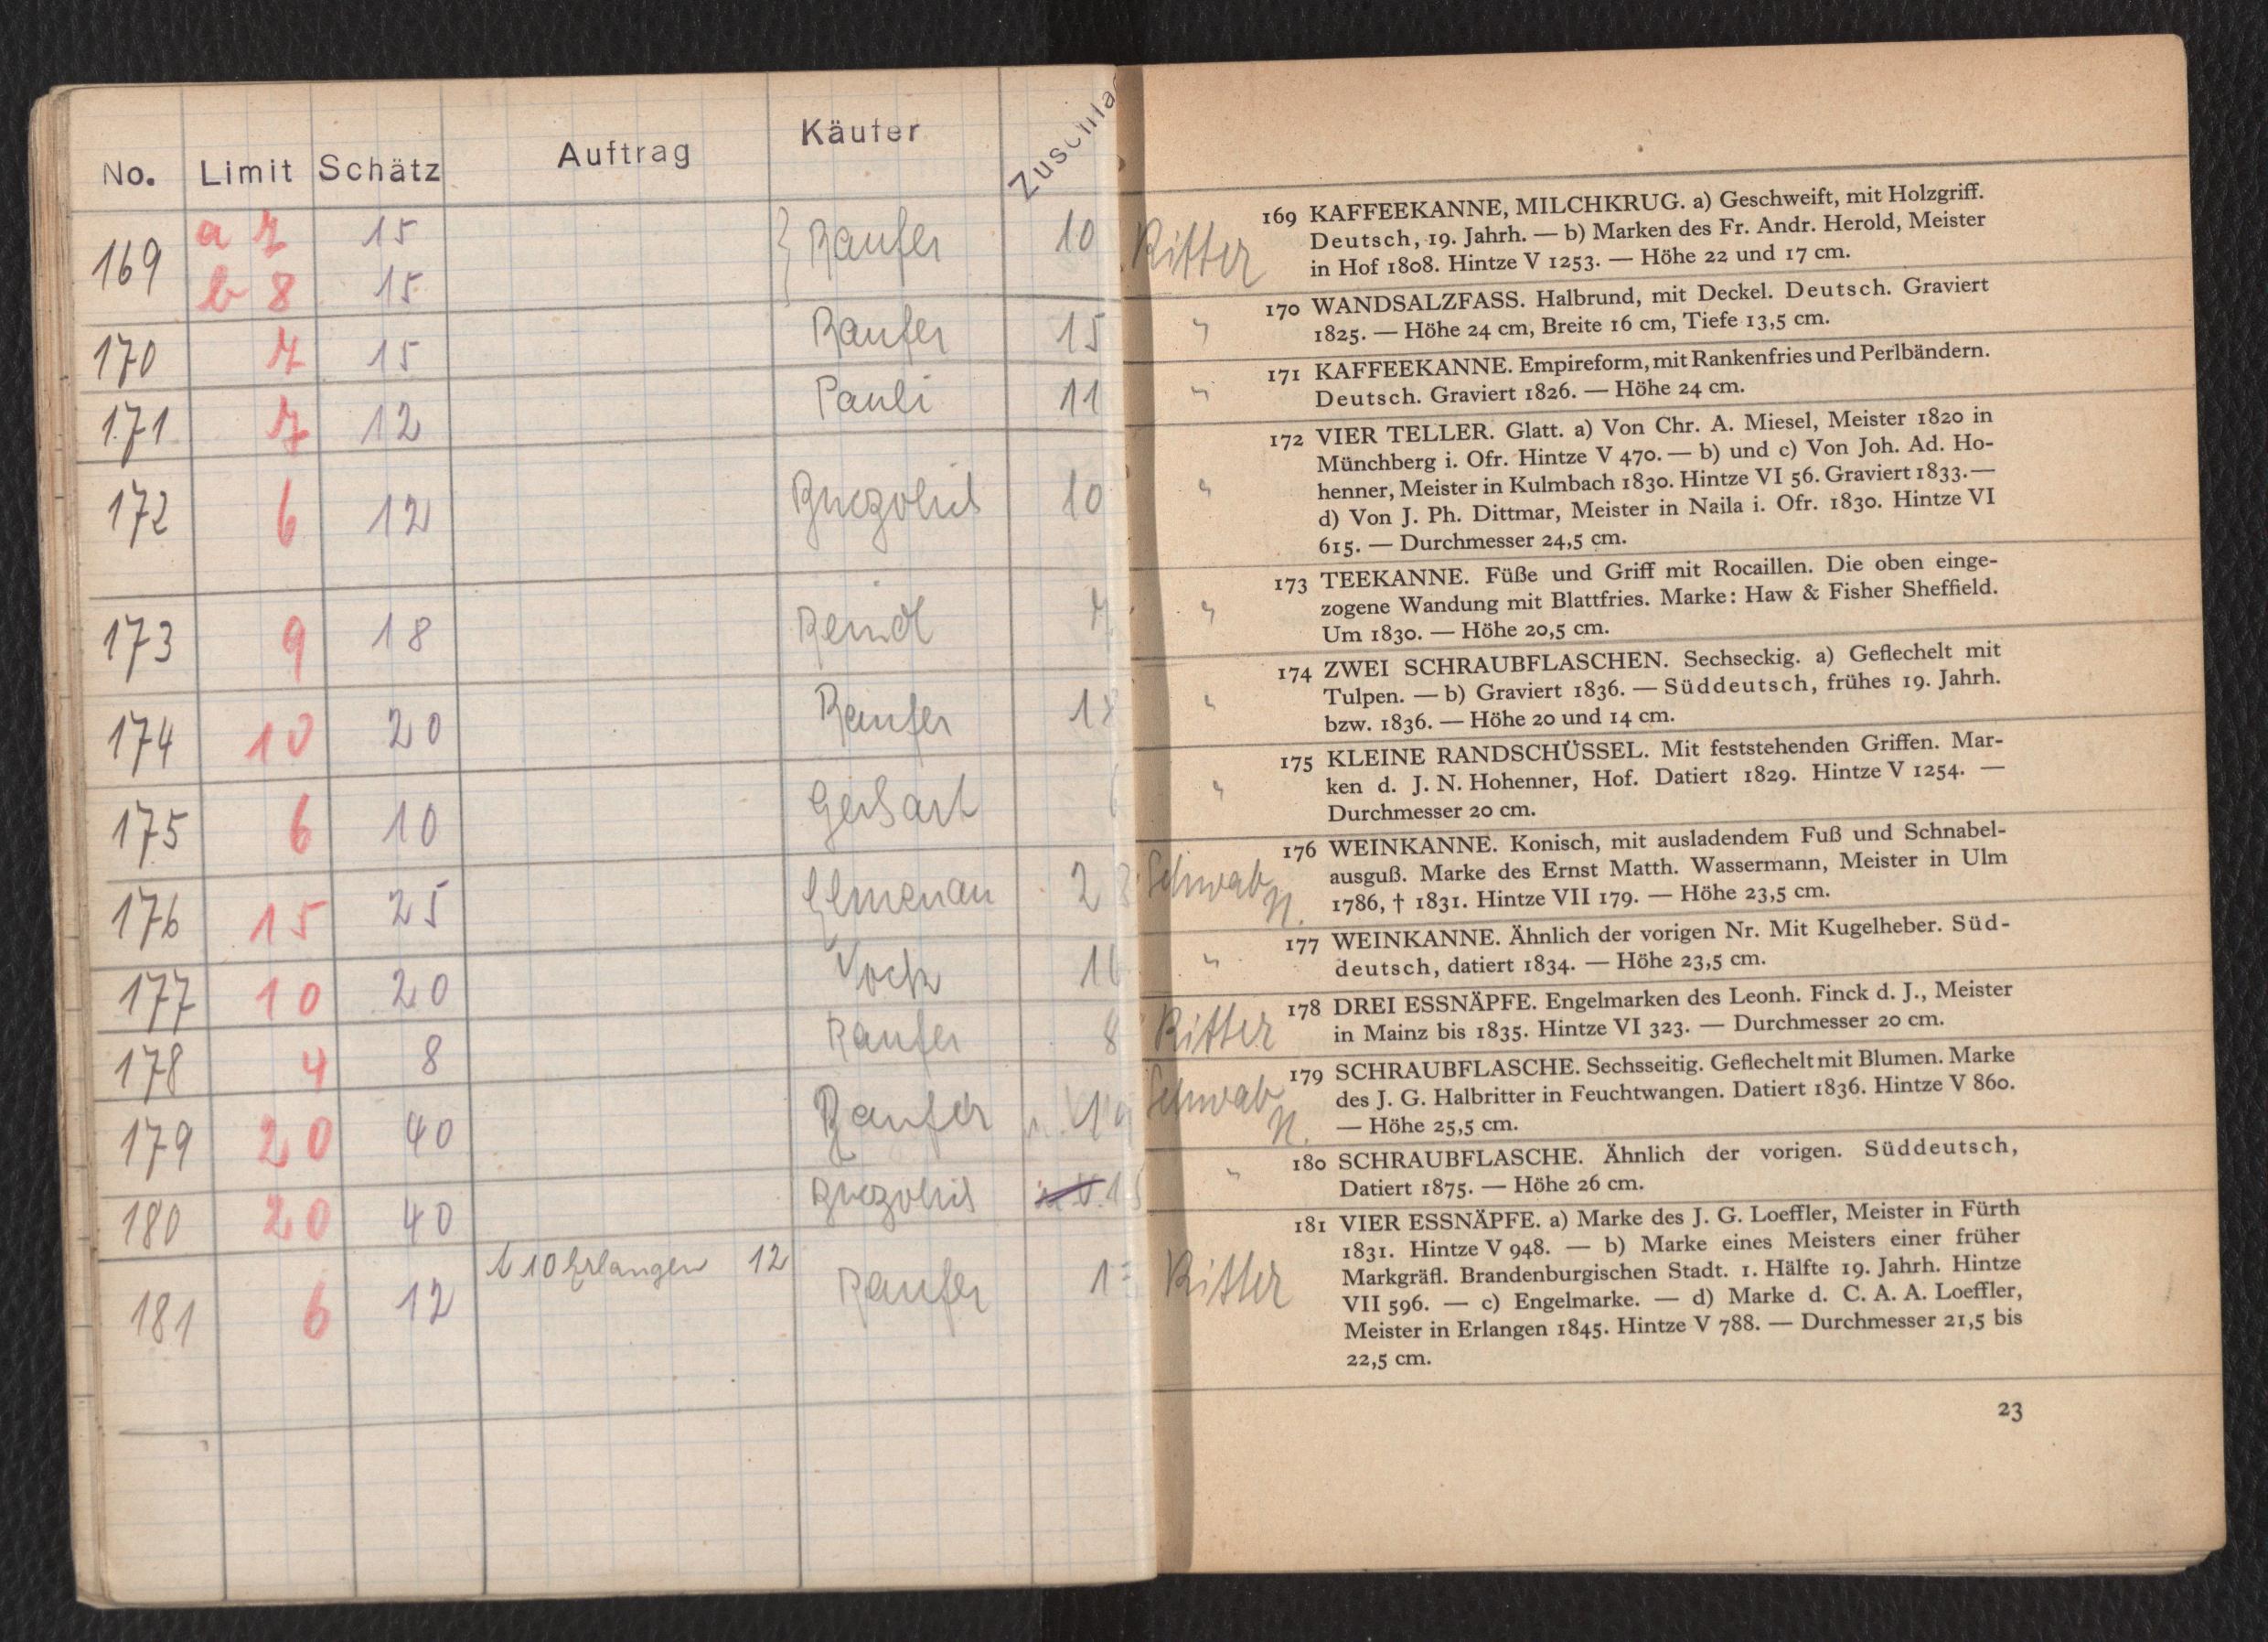 No. Limit Schätz Auftrag Käufer
169 a 7 15 Raufer 10
b 8 15
170 7 15 Raufer 15
171 7 12 Pauli 11
172 6 12 10
173 9 18 7
174 10 20 Raufer
175 6 10
176 15 25
177 10 20
178 4 8 Raufer 8
179 20 40 Raufer
180 20 40
181 6 12 10 Erlangen 12 Raufer
Ritter
"
"
"
"
"
"
Schwab
N.
"
Ritter
Schwab
N.
"
Ritter
169 KAFFEEKANNE, MILCHKRUG. a) Geschweift, mit Holzgriff.
Deutsch, 19. Jahrh. — b) Marken des Fr. Andr. Herold, Meister
in Hof 1808. Hintze V 1253. — Höhe 22 und 17 cm.
170 WANDSALZFASS. Halbrund, mit Deckel. Deutsch. Graviert
1825. — Höhe 24 cm, Breite 16 cm, Tiefe 13,5 cm.
171 KAFFEEKANNE. Empireform, mit Rankenfries und Perlbändern.
Deutsch. Graviert 1826. — Höhe 24 cm.
172 VIER TELLER. Glatt. a) Von Chr. A. Miesel, Meister 1820 in
Münchberg i. Ofr. Hintze V 470. — b) und c) Von Joh. Ad. Ho-
henner, Meister in Kulmbach 1830. Hintze VI 56. Graviert 1833. —
d) Von J. Ph. Dittmar, Meister in Naila i. Ofr. 1830. Hintze VI
615. — Durchmesser 24,5 cm.
173 TEEKANNE. Füße und Griff mit Rocaillen. Die oben einge-
zogene Wandung mit Blattfries. Marke: Haw & Fisher Sheffield.
Um 1830. — Höhe 20,5 cm.
174 ZWEI SCHRAUBFLASCHEN. Sechseckig. a) Geflechelt mit
Tulpen. — b) Graviert 1836. — Süddeutsch, frühes 19. Jahrh.
bzw. 1836. — Höhe 20 und 14 cm.
175 KLEINE RANDSCHÜSSEL. Mit feststehenden Griffen. Mar-
ken d. J. N. Hohenner, Hof. Datiert 1829. Hintze V 1254. —
Durchmesser 20 cm.
176 WEINKANNE. Konisch, mit ausladendem Fuß und Schnabel-
ausguß. Marke des Ernst Matth. Wassermann, Meister in Ulm
1786, † 1831. Hintze VII 179. — Höhe 23,5 cm.
177 WEINKANNE. Ähnlich der vorigen Nr. Mit Kugelheber. Süd-
deutsch, datiert 1834. — Höhe 23,5 cm.
178 DREI ESSNÄPFE. Engelmarken des Leonh. Finck d. J., Meister
in Mainz bis 1835. Hintze VI 323. — Durchmesser 20 cm.
179 SCHRAUBFLASCHE. Sechsseitig. Geflechelt mit Blumen. Marke
des J. G. Halbritter in Feuchtwangen. Datiert 1836. Hintze V 860.
— Höhe 25,5 cm.
180 SCHRAUBFLASCHE. Ähnlich der vorigen. Süddeutsch,
Datiert 1875. — Höhe 26 cm.
181 VIER ESSNÄPFE. a) Marke des J. G. Loeffler, Meister in Fürth
1831. Hintze V 948. — b) Marke eines Meisters einer früher
Markgräfl. Brandenburgischen Stadt. 1. Hälfte 19. Jahrh. Hintze
VII 596. — c) Engelmarke. — d) Marke d. C. A. A. Loeffler,
Meister in Erlangen 1845. Hintze V 788. — Durchmesser 21,5 bis
22,5 cm.
23